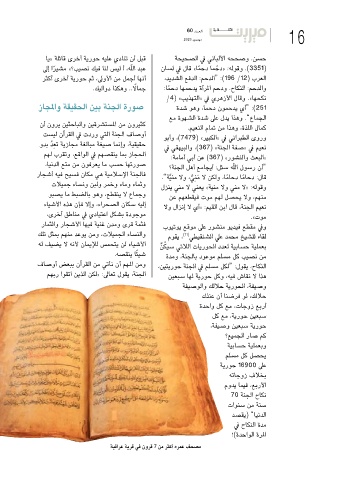 16
العدد 60
نوفمبر 2023
حسن، وصححه الألباني في الصحيحة
(3351). وقوله: «دَحْمًا دحمًا»، قال في لسان
العرب (12/ 196): "الدحم: الدفع الشديد،
والدحم: النكاح. ودحم المرأة يدحمها دحمًا:
نكحها». وقال الأزهري في «التهذيب» (4/
251): "أي يدحمون دحمًا، وهو شدة
الجماع". وهذا يدل على شدة الشهوة مع
كمال اللذة، وهذا من تمام النعيم.
وروى الطبراني في «الكبير» (7479)، وأبو
نعيم في «صفة الجنة» (367)، والبيهقي في
«البعث والنشور» (367) عن أبي أمامة:
"أن رسول الله سئل: أيجامع أهل الجنة؟
قال: دحامًا دحامًا، ولكن لا مَنِيَّ، ولا مَنِيَّة".
وقوله: «لا مني ولا منية» يعني لا مني ينزل
منهم، ولا يحصل لهم موت فيقطعهم عن
نعيم الجنة. قال ابن القيم: «أي لا إنزال ولا
موت».
وفي مقطع فيديو منشور على موقع يوتيوب
لقاء للشيخ محمد علي الشنقيطي(1)، يقوم
بعملية حسابية لعدد الحوريات اللاتي سيكنَّ
من نصيب كل مسلم موعود بالجنة، ومدة
النكاح، يقول: "لكل مسلم في الجنة حوريتين،
هذا لا نقاش فيه، وكل حورية لها سبعين
وصيفة، الحورية حلالك والوصيفة
حلالك، لو فرضنا أن عندك
أربع زوجات، مع كل واحدة
سبعين حورية، مع كل
حورية سبعين وصيفة،
كم صار الجميع؟
وبعملية حسابية
يحصل كل مسلم
على 16900 حورية
بخلاف زوجاته
الأربع، فيما يدوم
نكاح الجنة 70
سنة من سنوات
الدنيا" (يقصد
مدة النكاح في
المرة الواحدة)!
قبل أن تنادي عليه حورية أخرى قائلة «يا
عبد الله، أليس لنا فيك نصيب؟» مشيرًا إلى
أنها أجمل من الأولى، ثم حورية أخرى أكثر
جمالًا.. وهكذا دواليك.
صورة الجنة بين الحقيقة والمجاز
كثيرون من المستشرقين والباحثين يرون أن
أوصاف الجنة التي وردت في القرآن ليست
حقيقية، وإنما صيغة مبالغة مجازية تعدُ بدو
الحجاز بما ينقصهم في الواقع، وتقرب لهم
صورتها حسب ما يعرفون من متع الدنيا.
فالجنة الإسلامية هي مكان فسيح فيه أشجار
وثماء وماء وخمر ولبن ونساء جميلات
وجماع لا ينقطع، وهو بالضبط ما يصبو
إليه سكان الصحراء، وإلا فإن هذه الأشياء
موجودة بشكل اعتيادي في مناطق أخرى،
فثمة قرى ومدن غنية فيها الأشجار والثمار
والنساء الجميلات، ومن يوعد منهم بمثل تلك
الأشياء لن يتحمس للإيمان لأنه لا يضيف له
شيئًا ينقصه.
ومن المهم أن نأتي من القرآن ببعض أوصاف
الجنة، يقول تعالى: «لكن الذين اتقوا ربهم
مصحف عمره أكثر من 7 قرون في قرية عراقية